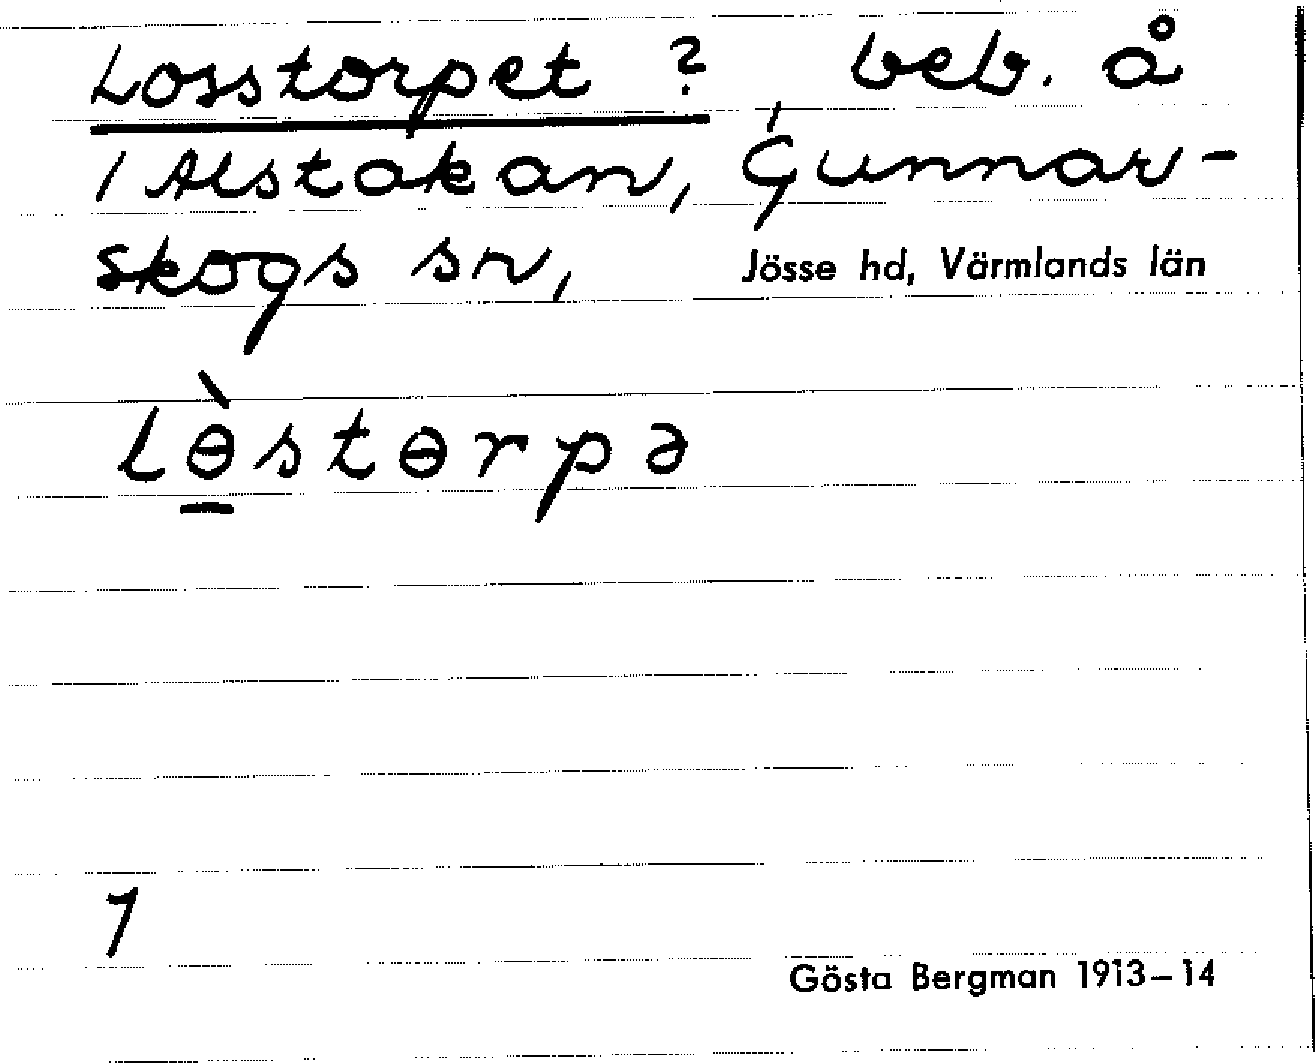 Losstorpet ? beb. å
1 Alstakan, Gunnar-
skogs sn, Jösse hd, Värmlands län
lɵ̱̀stɵrpə
1
Gösta Bergman 1913–14